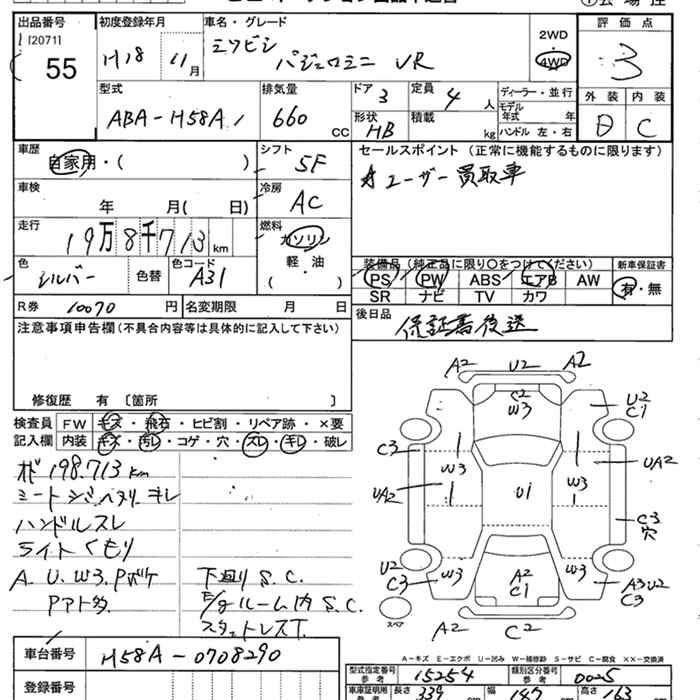 出品番号 初度登録年月 車名・グレード 評価点
120711
55
H18 年 11月
ミツビシ
パジェロミニ VR
2WD
4WD
3
型式 排気量 ドア 3 定員 4人 ディーラー・並行 外装 内装
ABA-H58A 660 CC
形状 HB 積載 kg モデル年式 年
ハンドル 左・右
D C
車歴 自家用・( ) シフト 5F
セールスポイント（正常に機能するものに限ります）
ユーザー買取車
車検 年 月( 日) 冷房 AC
走行 19万8千713km 燃料 ガソリン
軽・油
( )
色 シルバー 色替 色コード A31
装備品（純正品に限り○をつけてください） 新車保証書
PS PW ABS エアB AW 有・無
SR ナビ TV カワ
R券 10070 円 名変期限 月 日
後日品 保証書後送
注意事項申告欄（不具合内容等は具体的に記入して下さい）
修復歴 有 〔箇所 〕
検査員 FW キズ・飛石・ヒビ割・リペア跡・×要
記入欄 内装 キズ・汚レ・コゲ・穴・スレ・キレ・破レ
198.713km
シートシミ ヘタリ キレ
ハンドルスレ
ライトくもり
A.U.W3.Pボケ
Pアト多
下廻りS.C.
E/gルーム内S.C.
スタットレスT.
A2 U2 A2
C2
W3
U2
C1
C3
W3
W3
UA2
UA2
U1
C3
穴
U2
C3
W3
W3
A2
C1
A3U2
C3
スペア
A2 C2
A-キズ E-エクボ U-凹み W-補修跡 S-サビ C-腐食 XX-交換済
車台番号 H58A-0708290
型式指定番号 参考 15254 類別区分番号 参考 0025
登録番号
車庫証明用 参考 長さ 339 幅 147 高さ 163